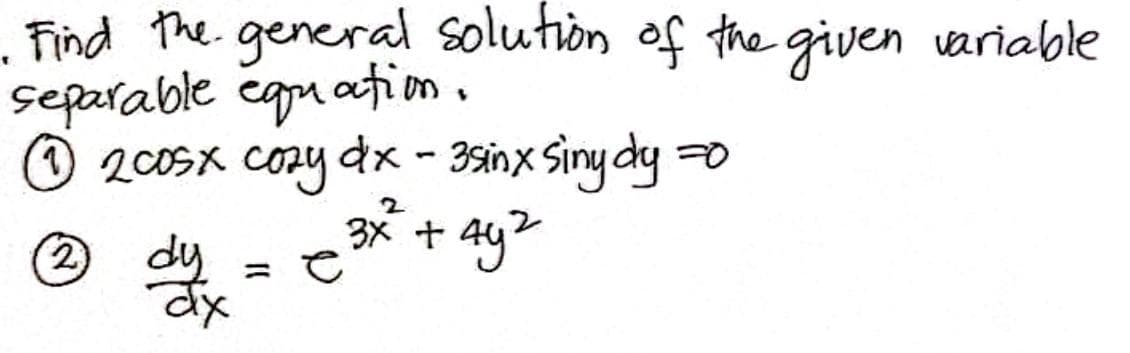 . Find the general solution of the given variable
separable equation.
① 2cosx cosy dx - 3sinx siny dy = 0
② dy/dx = e^(3x² + 4y²)